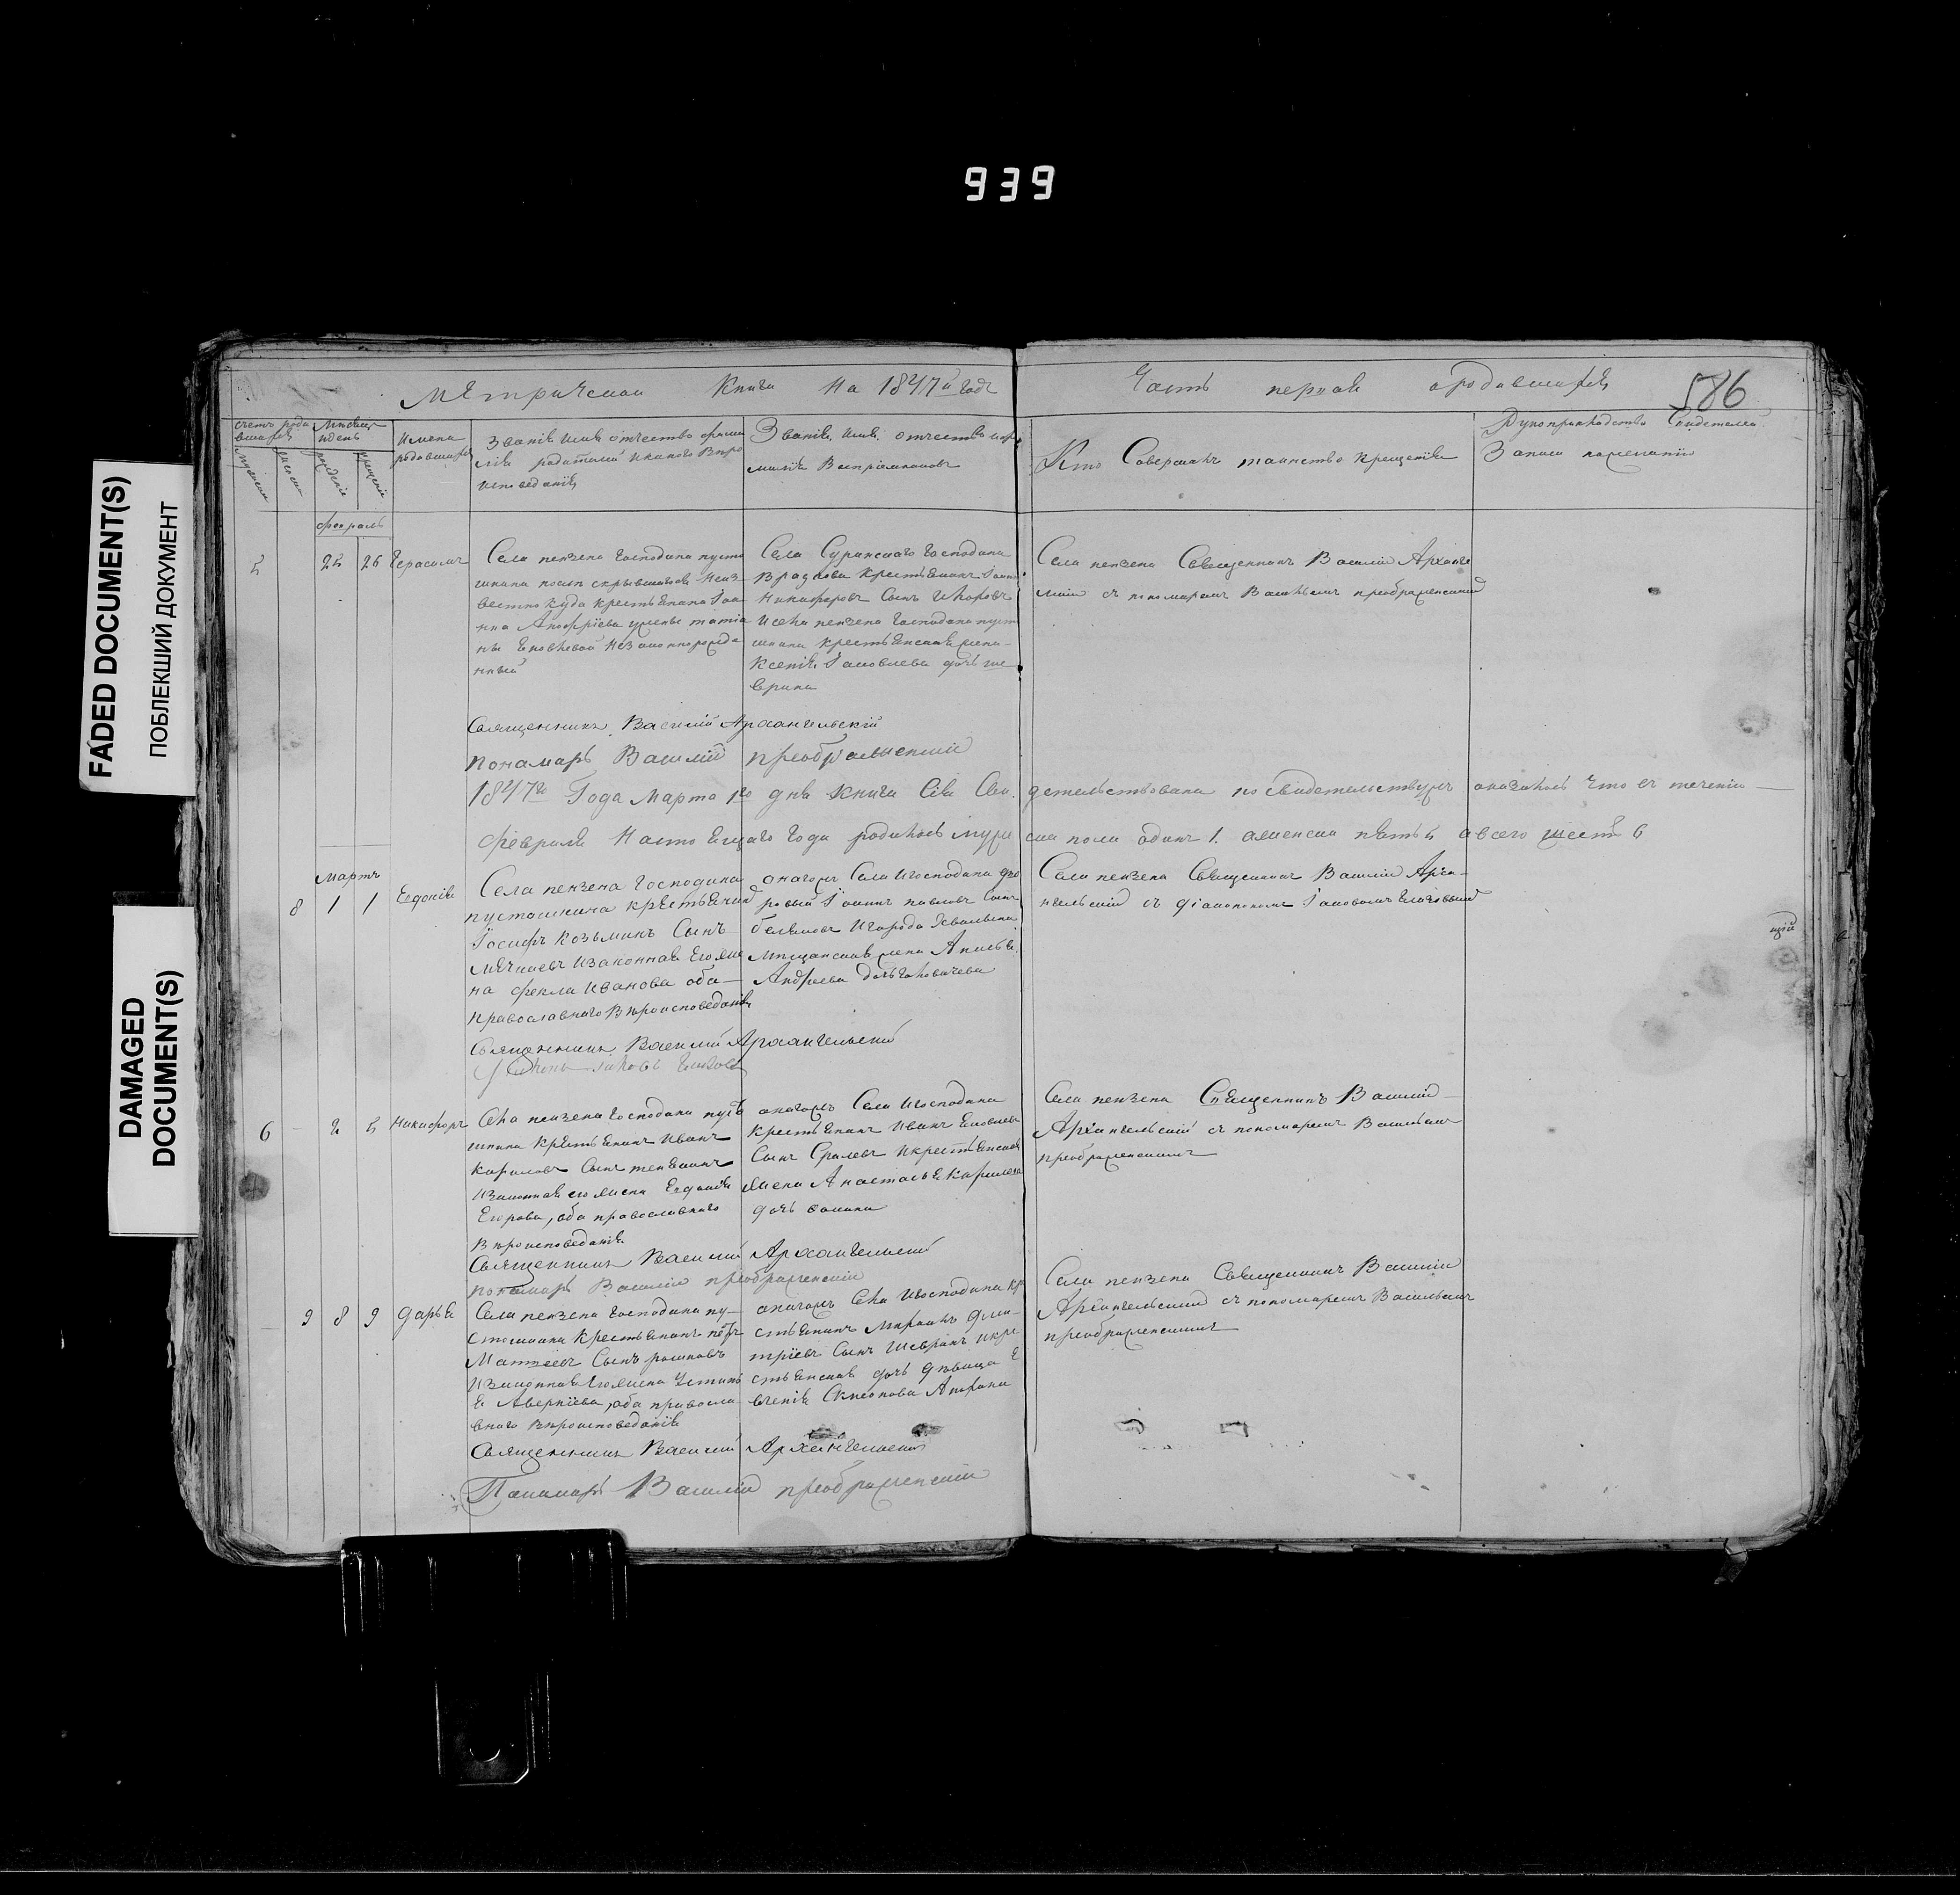 939
FADED DOCUMENT(S)
ПОБЛЕКШИЙ ДОКУМЕНТ
DAMAGED
DOCUMENT(S)
Метрической Книги На 1847й годъ
Часть первая о родившихся
586
счетъ роди
вшихся
Мѣсяцъ
и день
Имена
родившихся
мужеска
женска
рожденія
крещенія
Званіе имя отчество и фами
лія родителей и какого Вѣро
исповеданія
Званіе, имя, отчество и фа
милія Воспріемниковъ
Кто Совершалъ таинство крещенія
Рукоприкладство Свидетелей
Записи по желанію
февраль
5 25 26 Герасимъ
Села пензена Господина пусто
шкина послѣ скрывшагося Неиз
вестно куда крестьянина Іоа
нна
жены татіа
ны незаконнорожде
нный
Села Суринскаго Господина
крестьянинъ Іоаннъ
Никифоровъ Сынъ
и села пензена Господина пусто
шкина крестьянская жена
Ксенія Іаковлева дочь ше
врина
Села пензена Священникъ Василій Арханге
льскій съ пономаремъ Васильемъ преображенскимъ
Священникъ Василій Архангельскій
пономарь Василій преображенскій
1847го Года Марта 1го дня книга Сія Сви
детельствована по Свидетельству оказалось что въ теченіи
февраля Настоящаго Года родилось муже
ска пола одинъ 1. а женска пять 5 а всего шесть 6
Мартъ
8 1 1 Евдокія
Села пензена Господина
пустошкина крестьянинъ
Іосифъ козьминъ Сынъ
и законная Его же
на фекла иванова оба
православнаго Вѣроисповеданія
онагожъ Села и Господина дво
ровый Іоаннъ павловъ Сынъ
и города Хвалынска
мещанская жена
Андреева дочь
Села пензена Священникъ Василій Арха
нгельскій съ діакономъ Іаковомъ
щій
Священникъ Василій Архангельскій
6 2 5 Никифоръ
Села пензена Господина пусто
шкина крестьянинъ Иванъ
кириловъ Сынъ
и законная его жена Евдокія
Егорова, оба православнаго
Вѣроисповеданія
онагожъ Села и Господина
крестьянинъ Иванъ
Сынъ и крестьянская
жена Анастасья Кирилова
дочь
Села пензена Священникъ Василій
Архангельскій съ пономаремъ Васильемъ
преображенскимъ
Священникъ Василій Архангельскій
пономарь Василій преображенскій
9 8 9 Дарья
Села пензена Господина пу
стошкина Крестьянинъ петръ
Матвеевъ Сынъ
и законная Его жена Устинь
я Аверкіева, оба правосла
внаго Вѣроисповеданія
онагожъ Села и Господина кре
стьянинъ Миронъ Дми
тріевъ Сынъ Шевринъ и кре
стьянская дочь девица Е
Села пензена Священникъ Василій
Архангельскій съ пономаремъ Васильемъ
преображенскимъ
Священникъ Василій Архангельскій
Панамарь Василій преображенскій